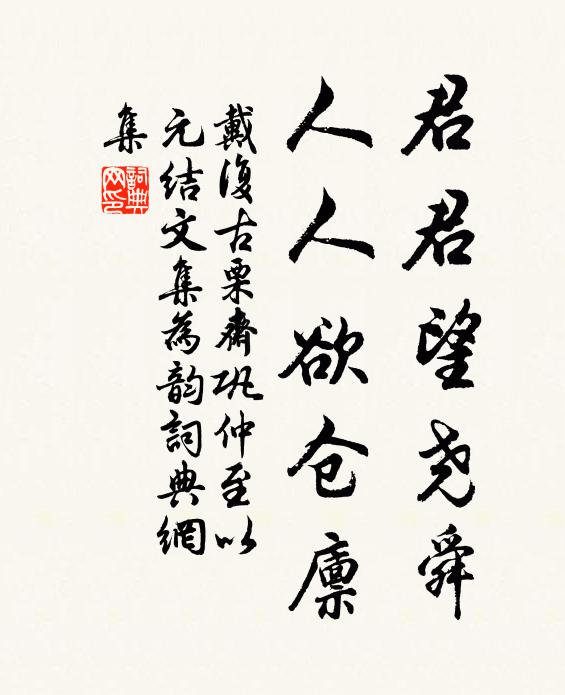 君君望尧舜
人人欲仓廪
戴復古栗齋巩仲至以
元结文集為韵詞典網
集
詞典网印